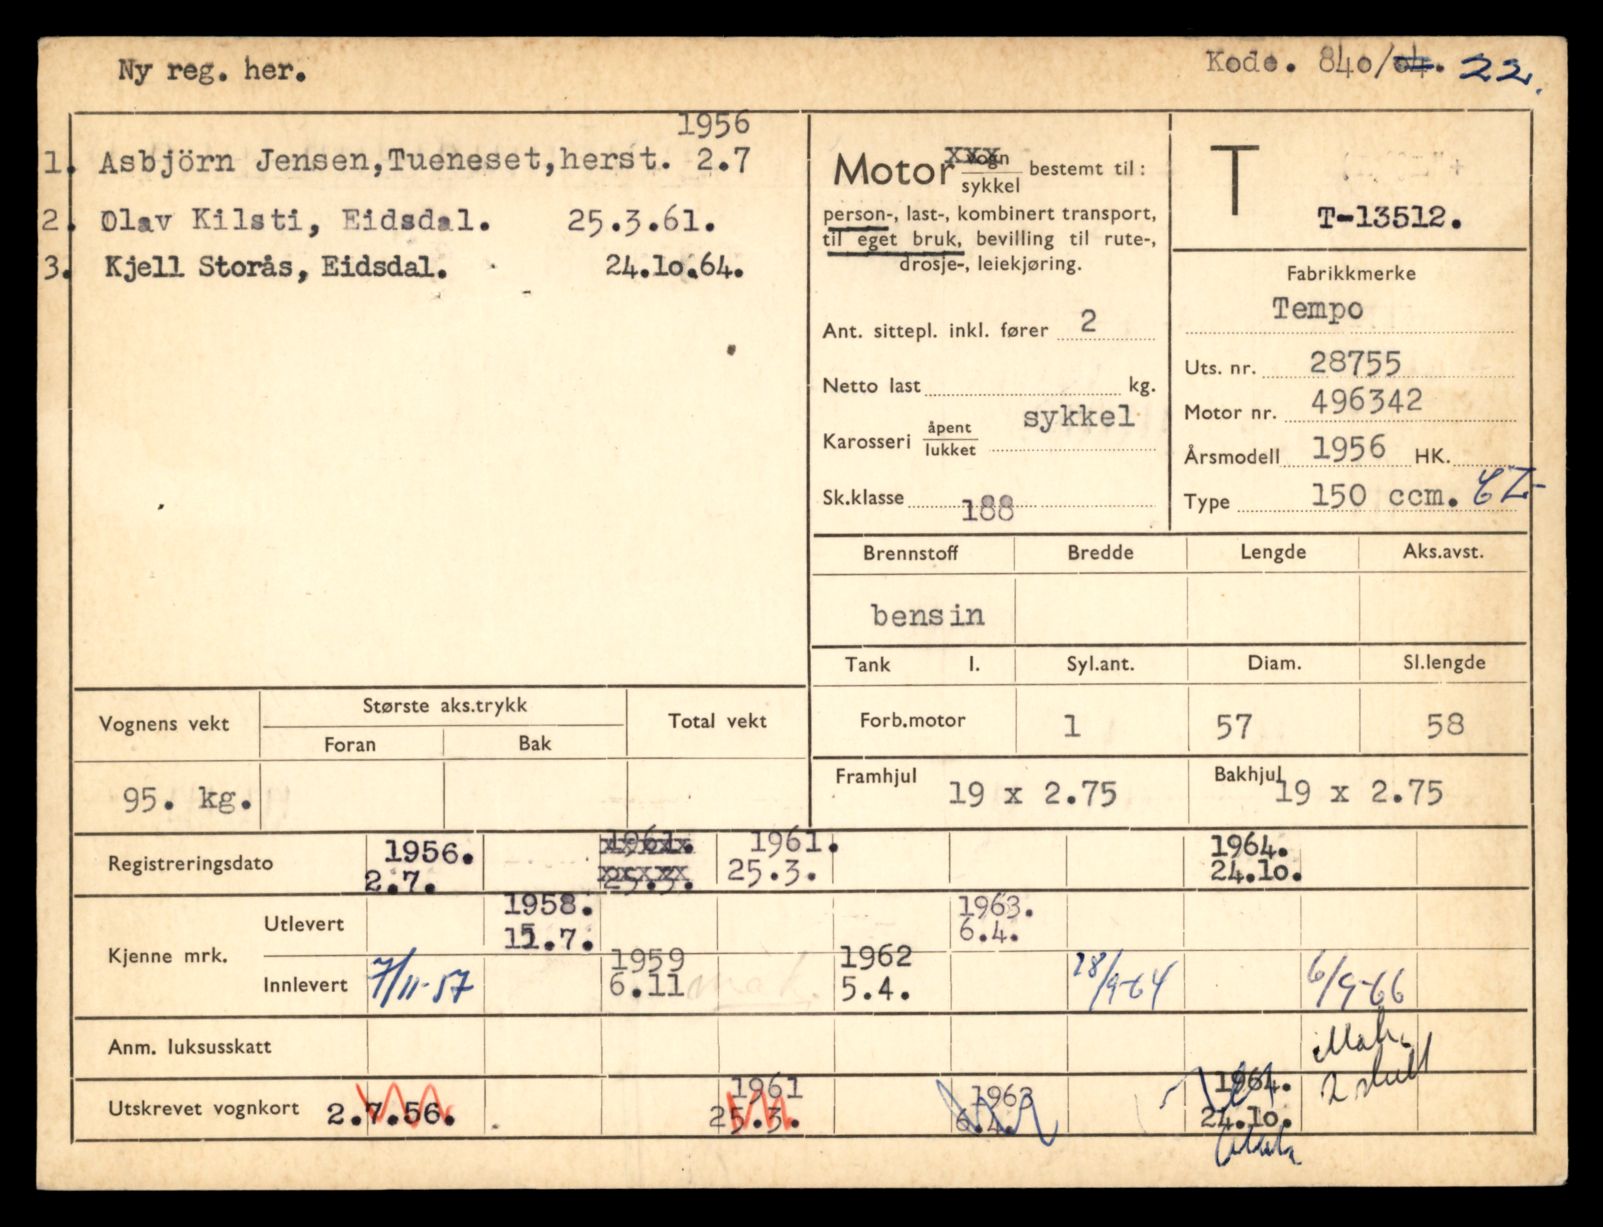 Ny reg. her.
Kode. 840/04. 22.
1956
1. Asbjörn Jensen,Tueneset,herst. 2.7
2. Olav Kilsti, Eidsdal. 25.3.61.
3. Kjell Storås, Eidsdal. 24.10.64.
Motor vogn/sykkel bestemt til:
person-, last-, kombinert transport,
til eget bruk, bevilling til rute-,
drosje-, leiekjøring.
Ant. sittepl. inkl. fører 2
Netto last kg.
Karosseri åpent/lukket sykkel
Sk.klasse 188
T
T-13512.
Fabrikkmerke
Tempo
Uts. nr. 28755
Motor nr. 496342
Årsmodell 1956 HK.
Type 150 ccm.
Brennstoff Bredde Lengde Aks.avst.
bensin
Tank l. Syl.ant. Diam. Sl.lengde
Forb.motor 1 57 58
Framhjul 19 x 2.75 Bakhjul 19 x 2.75
Vognens vekt Største aks.trykk Total vekt
Foran Bak
95. kg.
Registreringsdato 1956. 2.7. 1961. 25.3. 1961. 25.3. 1964. 24.10.
Kjenne mrk.
Utlevert 1958. 15.7. 1963. 6.4.
Innlevert 7/11-57 1959 6.11 1962 5.4. 28/9-64 6/9-66
Anm. luksusskatt
Utskrevet vognkort 2.7.56. 1961 25.3. 1963 6.4. 1964. 24.10.